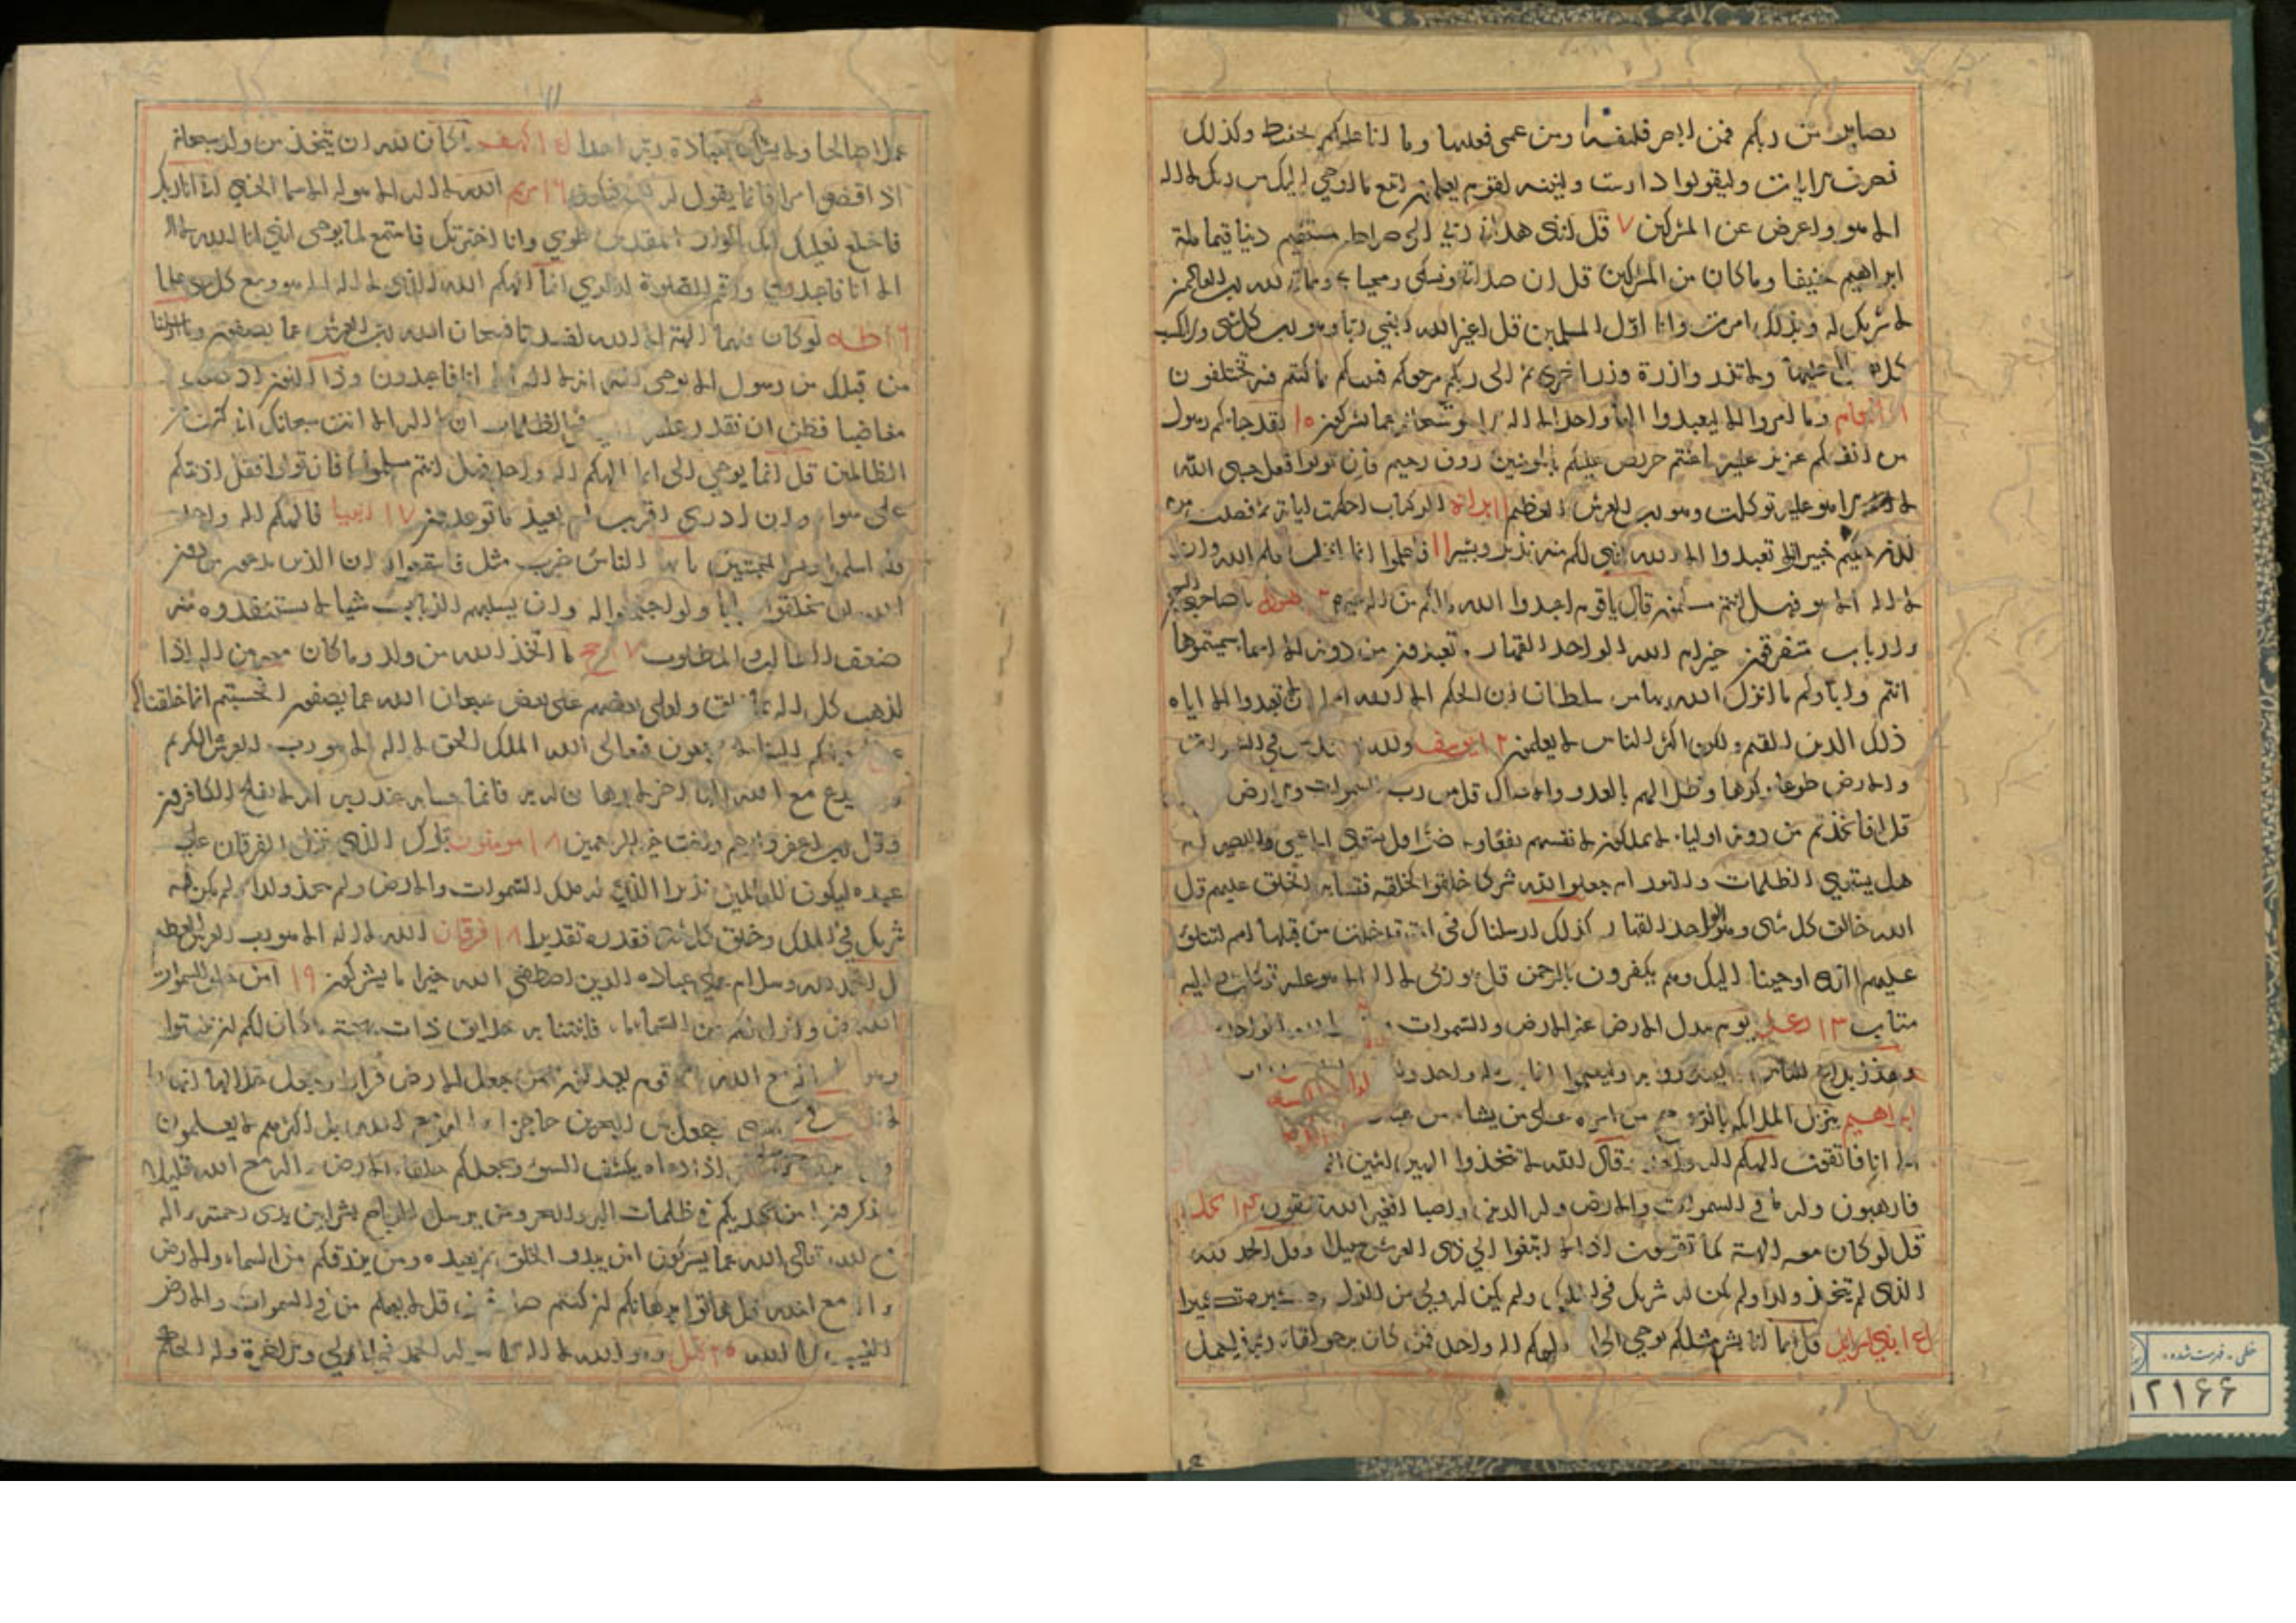 بصاير من ربكم فمن ابصر فلنفسه ومن عمى فعليها وما انا عليكم بحفيظ وكذلك
نصرف الايات وليقولوا دارست ولنبينه لقوم يعلمون اتبع ما اوحي اليك من ربك لا اله
الا هو واعرض عن المشركين ٧ قل انني هداني ربي الى صراط مستقيم دينا قيما ملة
ابراهيم حنيفا وما كان من المشركين قل ان صلاتي ونسكي ومحياي ومماتي لله رب العالمين
لا شريك له وبذلك امرت وانا اول المسلمين قل اغير الله ابغي ربا وهو رب كل شي ولا تكسب
كل نفس الا عليها ولا تزر وازرة وزر اخرى ثم الى ربكم مرجعكم فينبئكم بما كنتم فيه تختلفون
انعام وما امروا الا ليعبدوا الها واحدا لا اله الا هو سبحانه عما يشركون ١٠ لقد جاءكم رسول
من انفسكم عزيز عليه ما عنتم حريص عليكم بالمومنين روف رحيم فان تولوا فقل حسبي الله
لا اله الا هو عليه توكلت وهو رب العرش العظيم ١١ براة الر كتاب احكمت اياته ثم فصلت من
لدن حكيم خبير الا تعبدوا الا الله انني لكم منه نذير وبشير ١١ فاعلموا انما انزل بعلم الله وان
لا اله الا هو فهل انتم مسلمون قال يا قوم اعبدوا الله مالكم من اله غيره ١٢ هود يا صاحبي السجن
ءارباب متفرقون خير ام الله الواحد القهار ما تعبدون من دونه الا اسما سميتموها
انتم واباوكم ما انزل الله بها من سلطان ان الحكم الا لله امر الا تعبدوا الا اياه
ذلك الدين القيم ولكن اكثر الناس لا يعلمون ١٢ يوسف ولله يسجد من في السموات
والارض طوعا وكرها وظلالهم بالغدو والاصال قل من رب السموات والارض
قل افاتخذتم من دونه اولياء لا يملكون لانفسهم نفعا ولا ضرا قل هل يستوى الاعمى والبصير ام
هل يستوي الظلمات والنور ام جعلوا لله شركا خلقوا كخلقه فتشابه الخلق عليهم قل
الله خالق كل شي وهو الواحد القهار كذلك ارسلناك في امة قد خلت من قبلها امم لتتلو
عليهم الذي اوحينا اليك وهم يكفرون بالرحمن قل هو ربي لا اله الا هو عليه توكلت واليه
متاب ١٣ رعد يوم تبدل الارض غير الارض والسموات وبرزوا لله الواحد
هذا بلاغ للناس ولينذروا به وليعلموا انما هو اله واحد
ابراهيم ينزل الملائكة بالروح من امره على من يشاء من عباده
الا انا فاتقون الهكم اله واحد وقال الله لا تتخذوا الهين اثنين
فارهبون وله ما في السموات والارض وله الدين واصبا افغير الله تتقون ١٤ نحل
قل لو كان معه الهة كما تقولون اذا لابتغوا الى ذي العرش سبيلا وقل الحمد لله
الذي لم يتخذ ولدا ولم يكن له شريك في الملك ولم يكن له ولي من الذل وكبره تكبيرا
١٤ بني اسرايل قل انما انا بشر مثلكم يوحى الي انما الهكم اله واحد فمن كان يرجو لقاء ربه فليعمل
عملا صالحا ولا يشرك بعبادة ربه احدا ١٥ كهف ما كان لله ان يتخذ من ولد سبحانه
اذا قضى امرا فانما يقول له كن فيكون ١٦ مريم الله لا اله الا هو له الاسما الحسنى اني انا ربك
فاخلع نعليك انك بالواد المقدس طوي وانا اخترتك فاستمع لما يوحى انني انا الله لا اله
الا انا فاعبدني واقم الصلوة لذكري انما الهكم الله الذي لا اله الا هو وسع كل شي علما
١٦ طه لو كان فيهما الهة الا الله لفسدتا فسبحان الله رب العرش عما يصفون وما ارسلنا
من قبلك من رسول الا نوحي اليه انه لا اله الا انا فاعبدون وذا النون اذ ذهب
مغاضبا فظن ان لن نقدر عليه فنادى في الظلمات ان لا اله الا انت سبحانك اني كنت من
الظالمين قل انما يوحي الى انما الهكم اله واحد فهل انتم مسلمون فان تولوا فقل اذنتكم
على سواء وان ادري اقريب ام بعيد ما توعدون ١٧ انبيا فالهكم اله واحد
فله اسلموا وبشر المخبتين يا ايها الناس ضرب مثل فاستمعوا له ان الذين تدعون من دون
الله لن يخلقوا ذبابا ولو اجتمعوا له وان يسلبهم الذباب شيا لا يستنقذوه منه
ضعف الطالب والمطلوب ١٧ حج ما اتخذ الله من ولد وما كان معه من اله اذا
لذهب كل اله بما خلق ولعلى بعضهم على بعض سبحان الله عما يصفون افحسبتم انما خلقناكم
عبثا وانكم الينا لا ترجعون فتعالى الله الملك الحق لا اله الا هو رب العرش الكريم
ومن يدع مع الله الها اخر لا برهان له به فانما حسابه عند ربه انه لا يفلح الكافرون
وقل رب اغفر وارحم وانت خير الراحمين ١٨ مومنون تبارك الذي نزل الفرقان على
عبده ليكون للعالمين نذيرا الذي له ملك السموات والارض ولم يتخذ ولدا ولم يكن له
شريك في الملك وخلق كل شي فقدره تقديرا ١٨ فرقان الله لا اله الا هو رب العرش العظيم
قل الحمد لله وسلام على عباده الذين اصطفى الله خير اما يشركون ١٩ امن خلق السموات
والارض وانزل لكم من السماء ماء فانبتنا به حدائق ذات بهجة ما كان لكم ان تنبتوا
اله مع الله بل هم قوم يعدلون امن جعل الارض قرارا وجعل خلالها انهارا
وجعل بين البحرين حاجزا اله مع الله بل اكثرهم لا يعلمون
اذا دعاه ويكشف السوء ويجعلكم خلفاء الارض اله مع الله قليلا ما
تذكرون امن يهديكم في ظلمات البر والبحر ومن يرسل الرياح بشرا بين يدي رحمته اله
مع الله تعالى الله عما يشركون امن يبدو الخلق ثم يعيده ومن يرزقكم من السماء والارض
اله مع الله قل هاتوا برهانكم ان كنتم صادقين قل لا يعلم من في السموات والارض
الغيب الا الله ٢٠ نمل وهو الله لا اله الا هو له الحمد في الاولى والاخرة وله الحكم
خطی - فهرست شده
۱۲۱۶۶